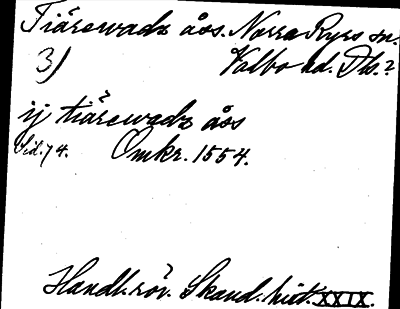 Tiärewadz åss. Norra Ryrs sn.
3) Valbo hd. Dls.?
ij tiärewadz åss
Sid. 74. Omkr. 1554.
Handl. rör. Skand. hist. XXIX.